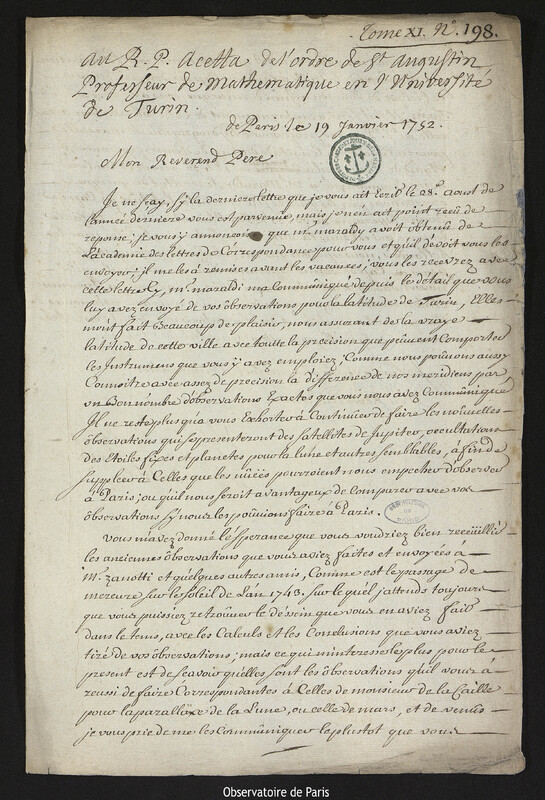 Tome XI. N.º 198.
au R. P. Acetta de l'ordre de St augustin,
Professeur de Mathematique en l'Université
de Turin.
de Paris le 19 Janvier 1752.
Mon Reverend Pere
Je ne sçay, sy la derniere lettre que je vous ait Ecrit le 28.e aoust de
l'année derniere vous est parvenue, mais je n'en ait point reçû de
reponse; je vous y annoncois que mr. maraldy avoit obtenu de
L'academie des lettres de Correspondance pour vous et qu'il devoit vous les
envoyer; il me les à remises avant les vacances; vous les recevrez avec
cette lettre Cy, mr. maraldi m'a Communiqué depuis le détail que vous
luy avez envoyé de vos observations pour la latitude de Turin, Elles
m'ont fait Beaucoup de plaisir, nous assurant de la vraye
latitude de cette ville avec toutte la précision que peuvent Comporter
les Instrumens que vous y avez emploiez; Comme nous pouvons aussy
Connoitre avec assez de précision la différence de nos meridiens par
un Bon nombre d'observations Exactes que vous nous avez Communiqué
Il ne reste plus qu'a vous Exhorter à Continuer de faire les nouvelles
observations qui se presenteront des satellites de Jupiter, occultations
des Etoiles fixes et planetes pour la lune et autres semblables, à fin de
suppléer à Celles que les nüées pourroient nous empecher d'observer
à Paris; ou qu'il nous seroit avantageux de Comparer avec vos
observations sy nous les pouvions faire à Paris.
Vous m'avez donné l'Esperance que vous voudriez bien recüeillir
les anciennes observations que vous aviez faites et envoyées à
Mr. Zanotti et quelques autres amis, Comme est le passage de
mercure sur le soleil de l'an 1743. sur le quel j'attends toujours
que vous puissiez retrouver le déssein que vous en aviez fait
dans le tems, avec les Calculs et les Conclusions que vous aviez
tiré de vos observations; mais ce qui m'interesse le plus pour le
present est de sçavoir qu'elles sont les observations qu'il vous à
reussi de faire Correspondantes à Celles de monsieur de la Caille
pour la parallaxe de la Lune, ou celle de mars, et de venus
je vous prie de me les Communiquer le plustot que vous
Observatoire de Paris